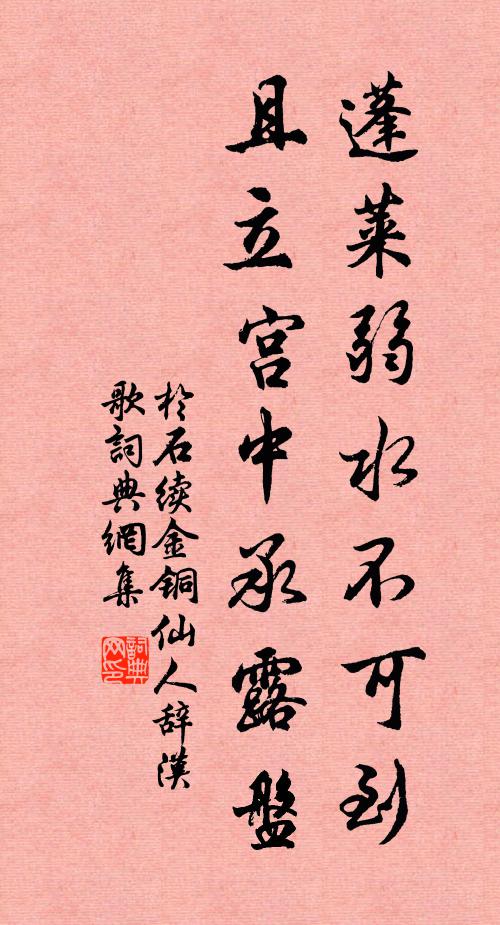 蓬萊弱水不可到
且立宫中承露盤
於石续金铜仙人辞漢
歌詞典網集
詞典
网印